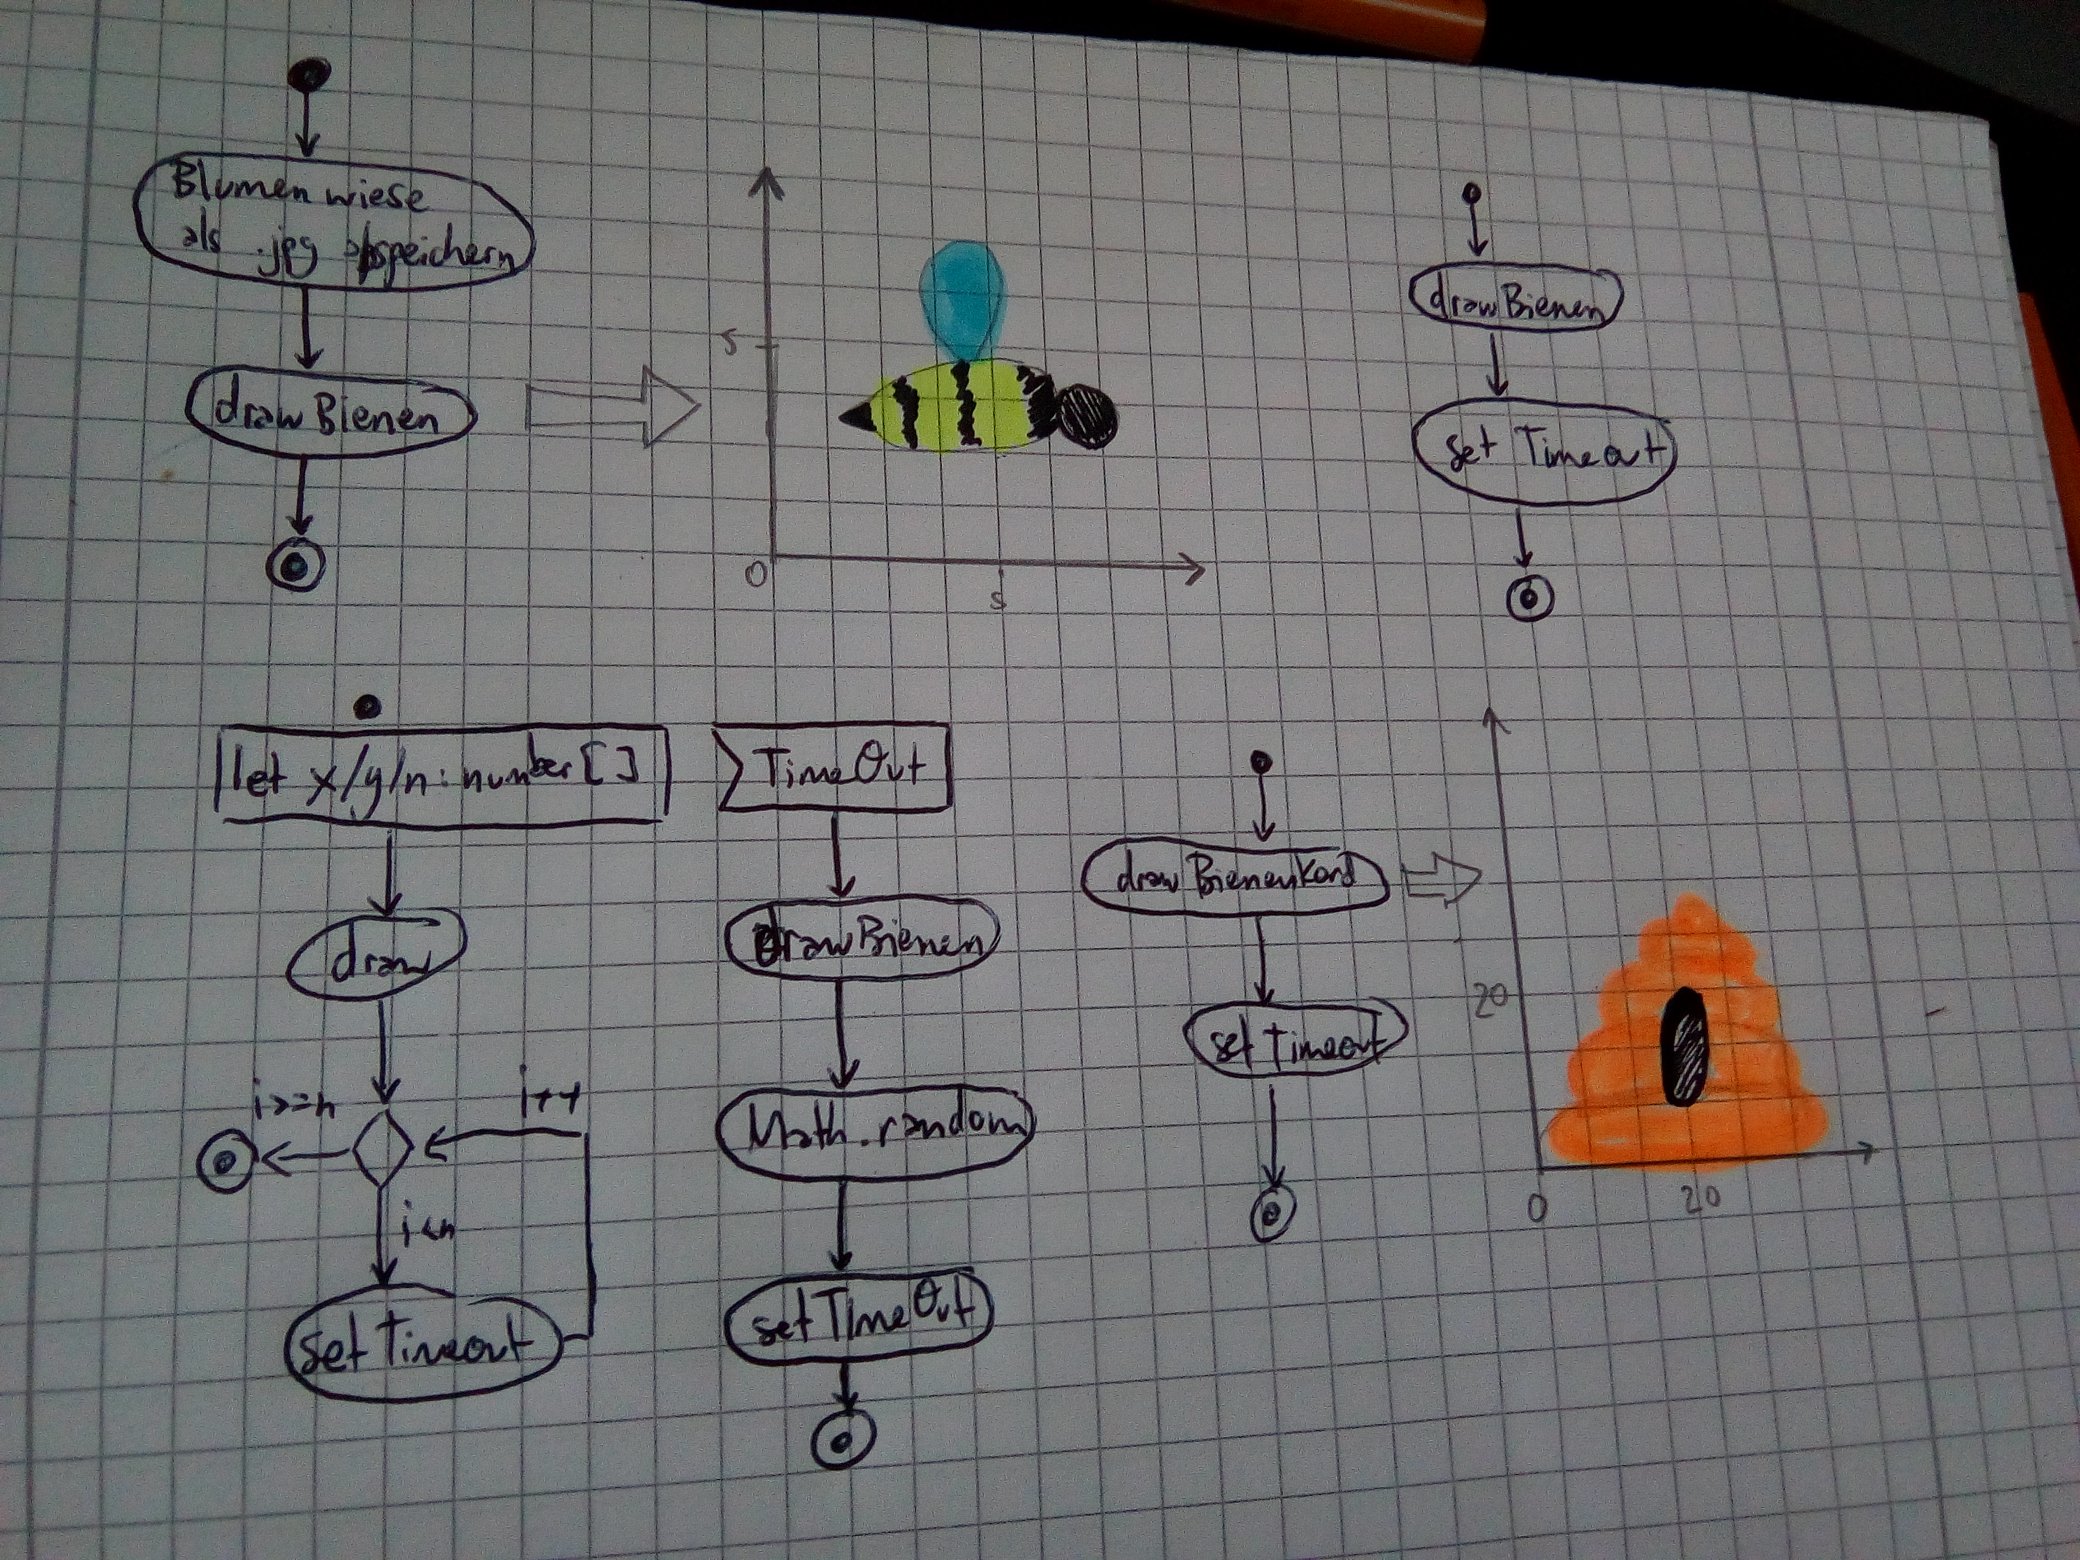 Blumenwiese
als .jpg abspeichern
drawBienen
5
0
5
drawBienen
set Timeout
let x/y/n: number[]
draw
i>=n
i++
i<n
set Timeout
TimeOut
drawBienen
Math.random
setTimeOut
draw BienenKord
set Timeout
20
0
20